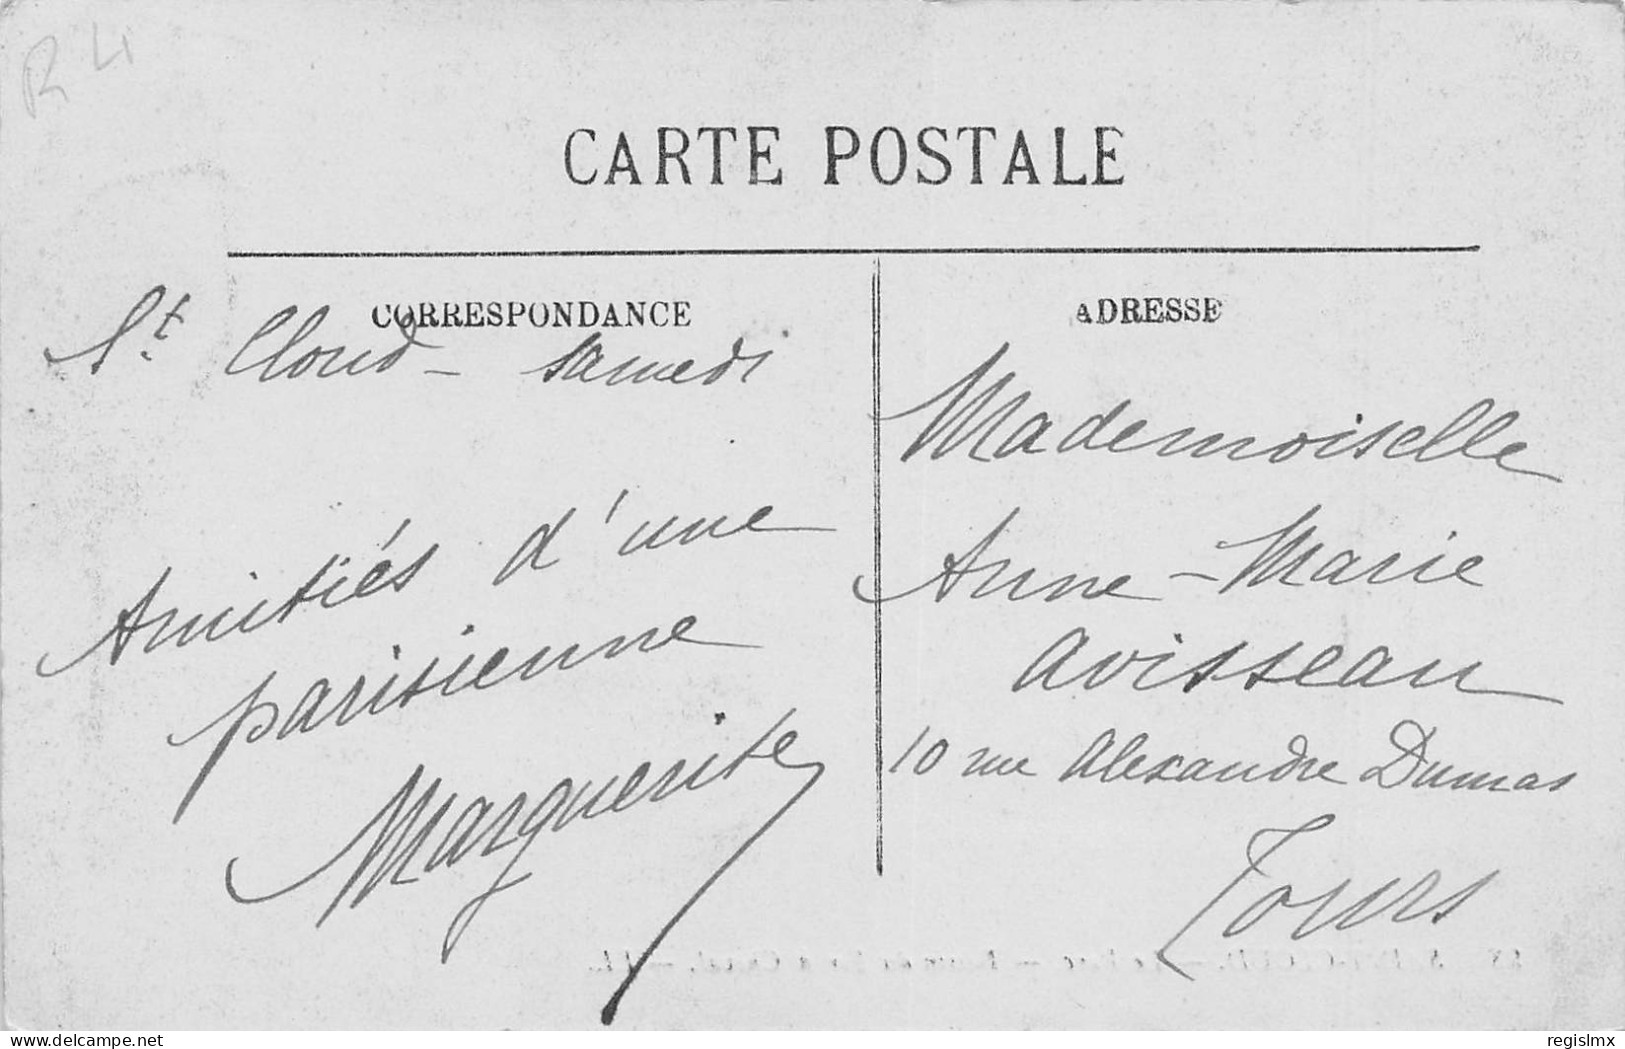 R 4
CARTE POSTALE
CORRESPONDANCE
St. Cloud - samedi
Amitiés d'une
parisienne
Marguerite
ADRESSE
Mademoiselle
Anne-Marie
Avisseau
10 rue Alexandre Dumas
Tours
delcampe.net
regislmx